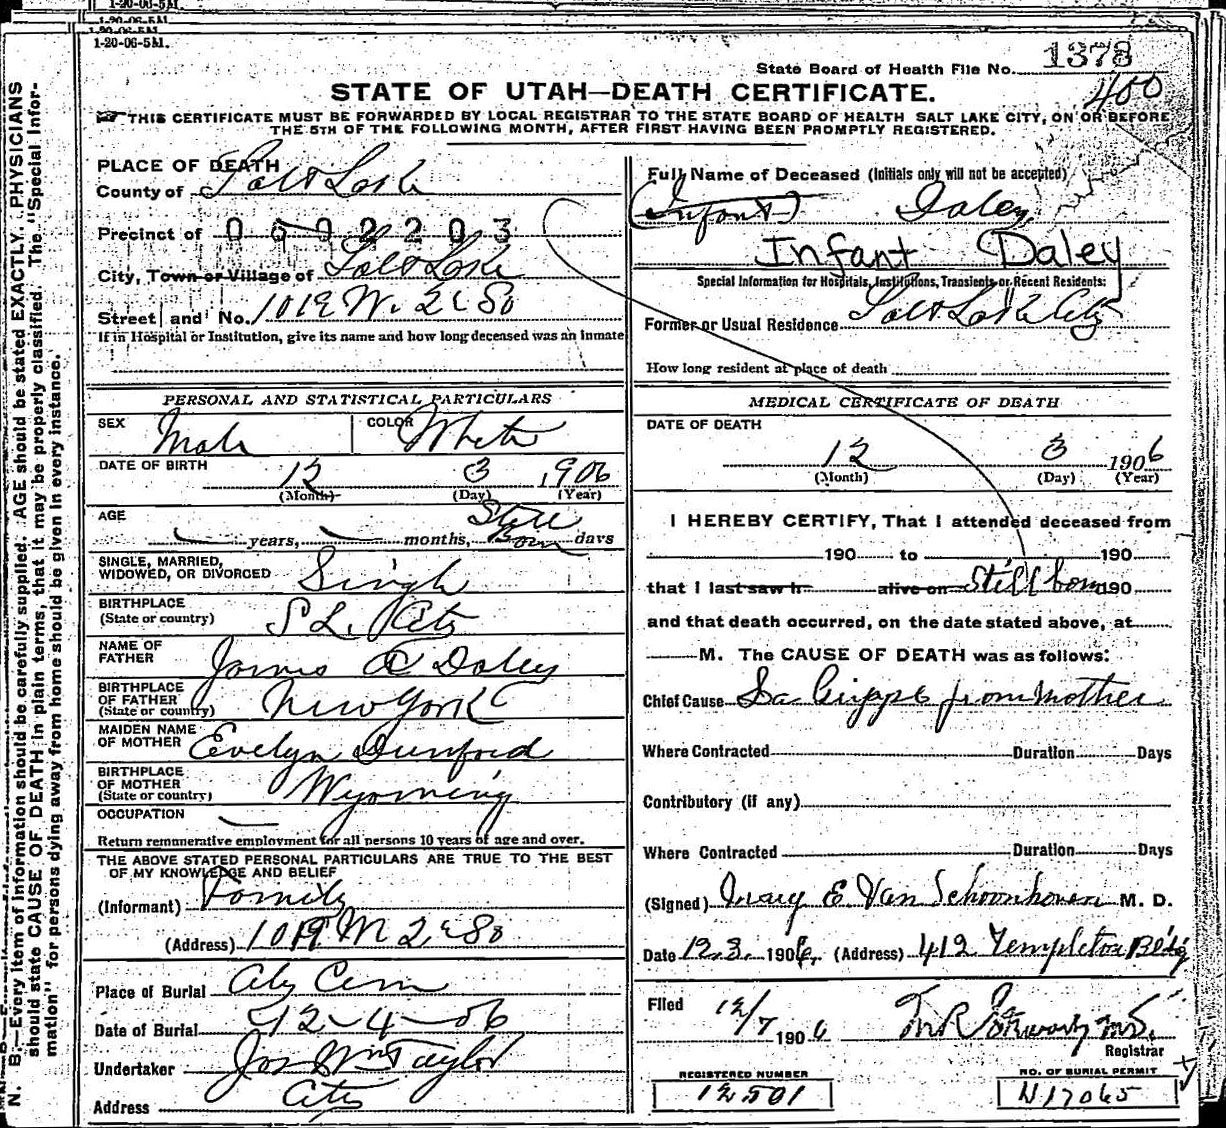 1-20-06-5M.
1-20-06-5M.
1-20-06-5M.
1-20-06-5M.
State Board of Health File No. 1378
400
STATE OF UTAH—DEATH CERTIFICATE.
THIS CERTIFICATE MUST BE FORWARDED BY LOCAL REGISTRAR TO THE STATE BOARD OF HEALTH SALT LAKE CITY, ON OR BEFORE
THE 5TH OF THE FOLLOWING MONTH, AFTER FIRST HAVING BEEN PROMPTLY REGISTERED.
N. B.—Every item of information should be carefully supplied. AGE should be stated EXACTLY. PHYSICIANS
should state CAUSE OF DEATH in plain terms, that it may be properly classified. The "Special Infor-
mation" for persons dying away from home should be given in every instance.
PLACE OF DEATH
County of Salt Lake
Precinct of 0602203
City, Town or Village of Salt Lake
Street and No. 1019 W. 2d So
If in Hospital or Institution, give its name and how long deceased was an inmate
PERSONAL AND STATISTICAL PARTICULARS
SEX Male COLOR White
DATE OF BIRTH 12 3 1906
(Month) (Day) (Year)
AGE years, months, Still Born days
SINGLE, MARRIED,
WIDOWED, OR DIVORCED Single
BIRTHPLACE
(State or country) S L. City
NAME OF
FATHER James A Daley
BIRTHPLACE
OF FATHER
(State or country) New York
MAIDEN NAME
OF MOTHER Evelyn Dunford
BIRTHPLACE
OF MOTHER
(State or country) Wyoming
OCCUPATION
Return remunerative employment for all persons 10 years of age and over.
THE ABOVE STATED PERSONAL PARTICULARS ARE TRUE TO THE BEST
OF MY KNOWLEDGE AND BELIEF
(Informant) Family
(Address) 1019 W 2d So
Place of Burial City Cem
Date of Burial 12-4-06
Undertaker Jos Wm Taylor
Address City
Full Name of Deceased (Initials only will not be accepted)
(Infant) Daley
Infant Daley
Special Information for Hospitals, Institutions, Transients or Recent Residents:
Former or Usual Residence Salt Lake City
How long resident at place of death
MEDICAL CERTIFICATE OF DEATH
DATE OF DEATH
12 3 1906
(Month) (Day) (Year)
I HEREBY CERTIFY, That I attended deceased from
190 to 190
that I last saw h alive on Still born 190
and that death occurred, on the date stated above, at
M. The CAUSE OF DEATH was as follows:
Chief Cause La Grippe from Mother
Where Contracted Duration Days
Contributory (if any)
Where Contracted Duration Days
(Signed) E Van Schoonhoven M. D.
Date 12.3. 1906. (Address) 412 Templeton Bldg
Filed 12/7 1906 M.D.
Registrar
REGISTERED NUMBER
12501
NO. OF BURIAL PERMIT
N17065